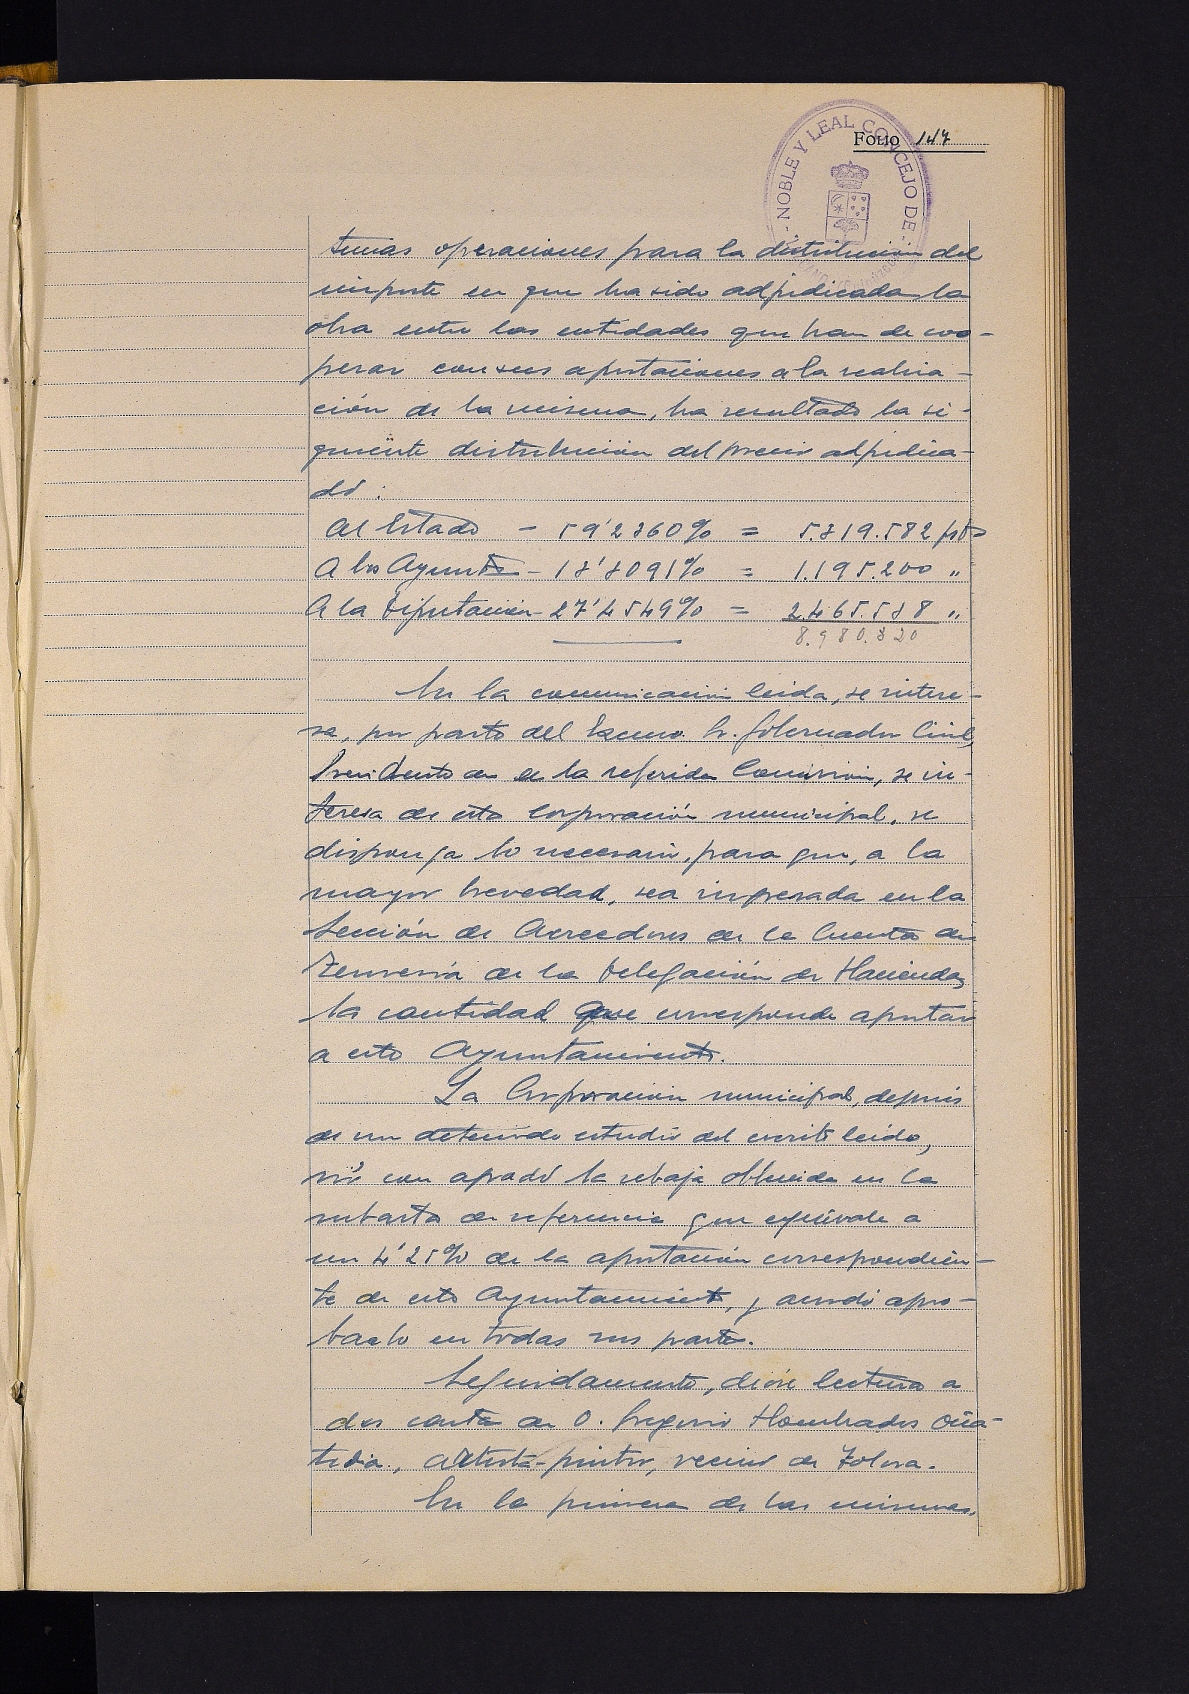 FOLIO 147
NOBLE Y LEAL CONCEJO DE
tunas operaciones para la distribución del
importe en que ha sido adjudicada la
obra entre las entidades que han de coo-
perar con sus aportaciones a la realiza-
ción de la misma, ha resultado la si-
guiente distribución del precio adjudica-
do:
Al Estado - 59'2360% = 5.319.582 pts
A los Ayuntos - 13'3091% = 1.195.200 "
A la Diputación - 27'4549% = 2.465.538 "
8.980.320
En la comunicación leída, se intere-
sa, por parte del Excmo. Sr. Gobernador Civil,
Presidente de la referida Comisión, se in-
teresa de esta Corporación municipal, se
disponga lo necesario, para que, a la
mayor brevedad, sea ingresada en la
Sección de Acreedores de la Cuenta de
Tesorería de la Delegación de Hacienda,
la cantidad que corresponde aportar
a este Ayuntamiento.
La Corporación municipal, después
de un detenido estudio del escrito leído,
vió con agrado la rebaja obtenida en la
subasta de referencia que equivale a
un 4'25% de la aportación correspondien-
te de este Ayuntamiento, y acordó apro-
barlo en todas sus partes.
Seguidamente, dióse lectura a
dos cartas de D. Gregorio Hombrados Oña-
tivia, artista-pintor, vecino de Tolosa.
En la primera de las mismas,